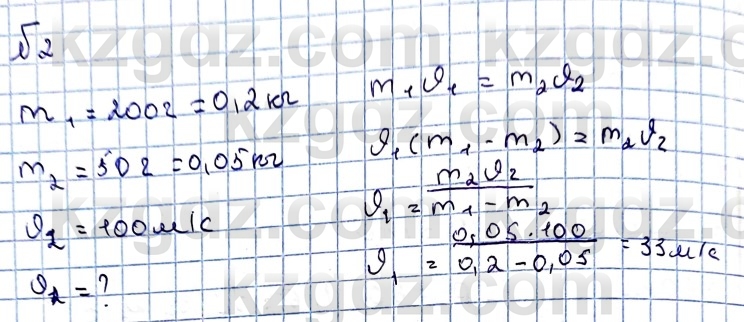 №2
m₁ = 200г = 0,2 кг
m₂ = 50г = 0,05 кг
ϑ₂ = 100 м/с
ϑ₁ = ?
m₁ϑ₁ = m₂ϑ₂
ϑ₁(m₁ - m₂) = m₂ϑ₂
ϑ₁ = m₂ϑ₂ / m₁ - m₂
ϑ₁ = 0,05 · 100 / 0,2 - 0,05 = 33 м/с
kzgdz.com